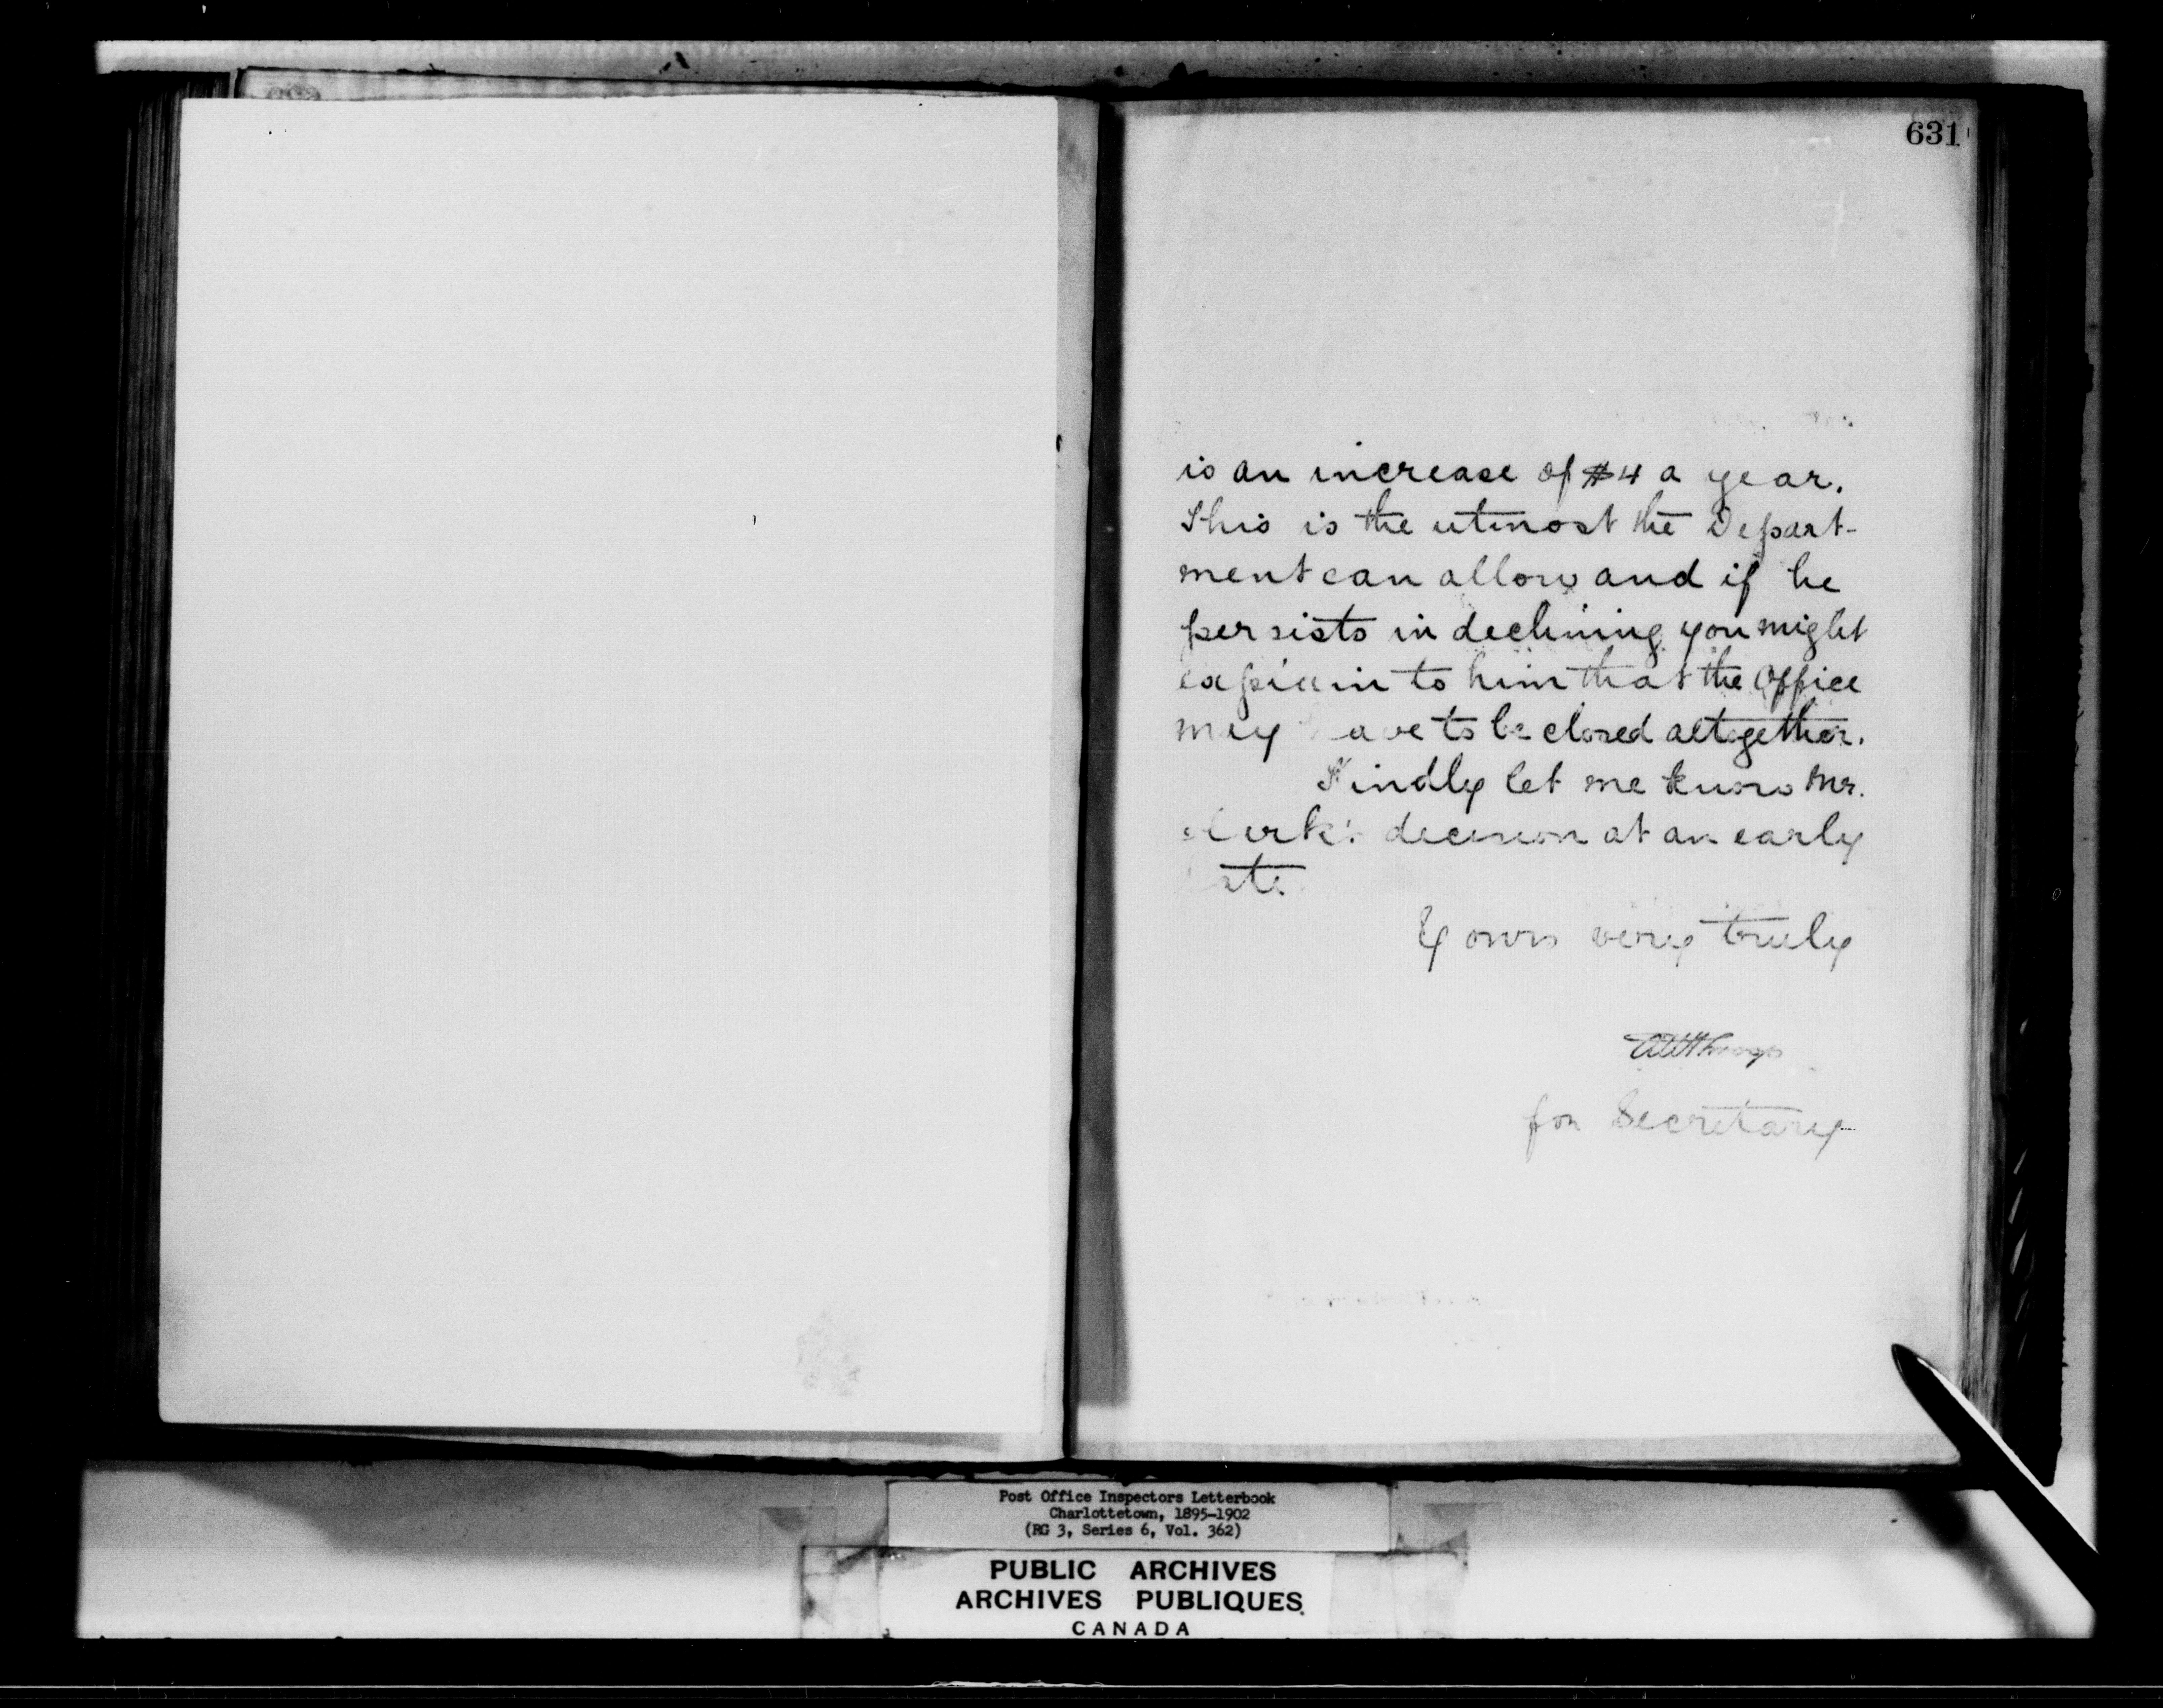 631
is an increase of $4 a year.
This is the utmost the Depart-
ment can allow and if he
persists in declining you might
explain to him that the Office
may have to be closed altogether.
Kindly let me know Mr.
decision at an early
date
Yours very truly
for Secretary
Post Office Inspectors Letterbook
Charlottetown, 1895-1902
(RG 3, Series 6, Vol. 362)
PUBLIC ARCHIVES
ARCHIVES PUBLIQUES
CANADA